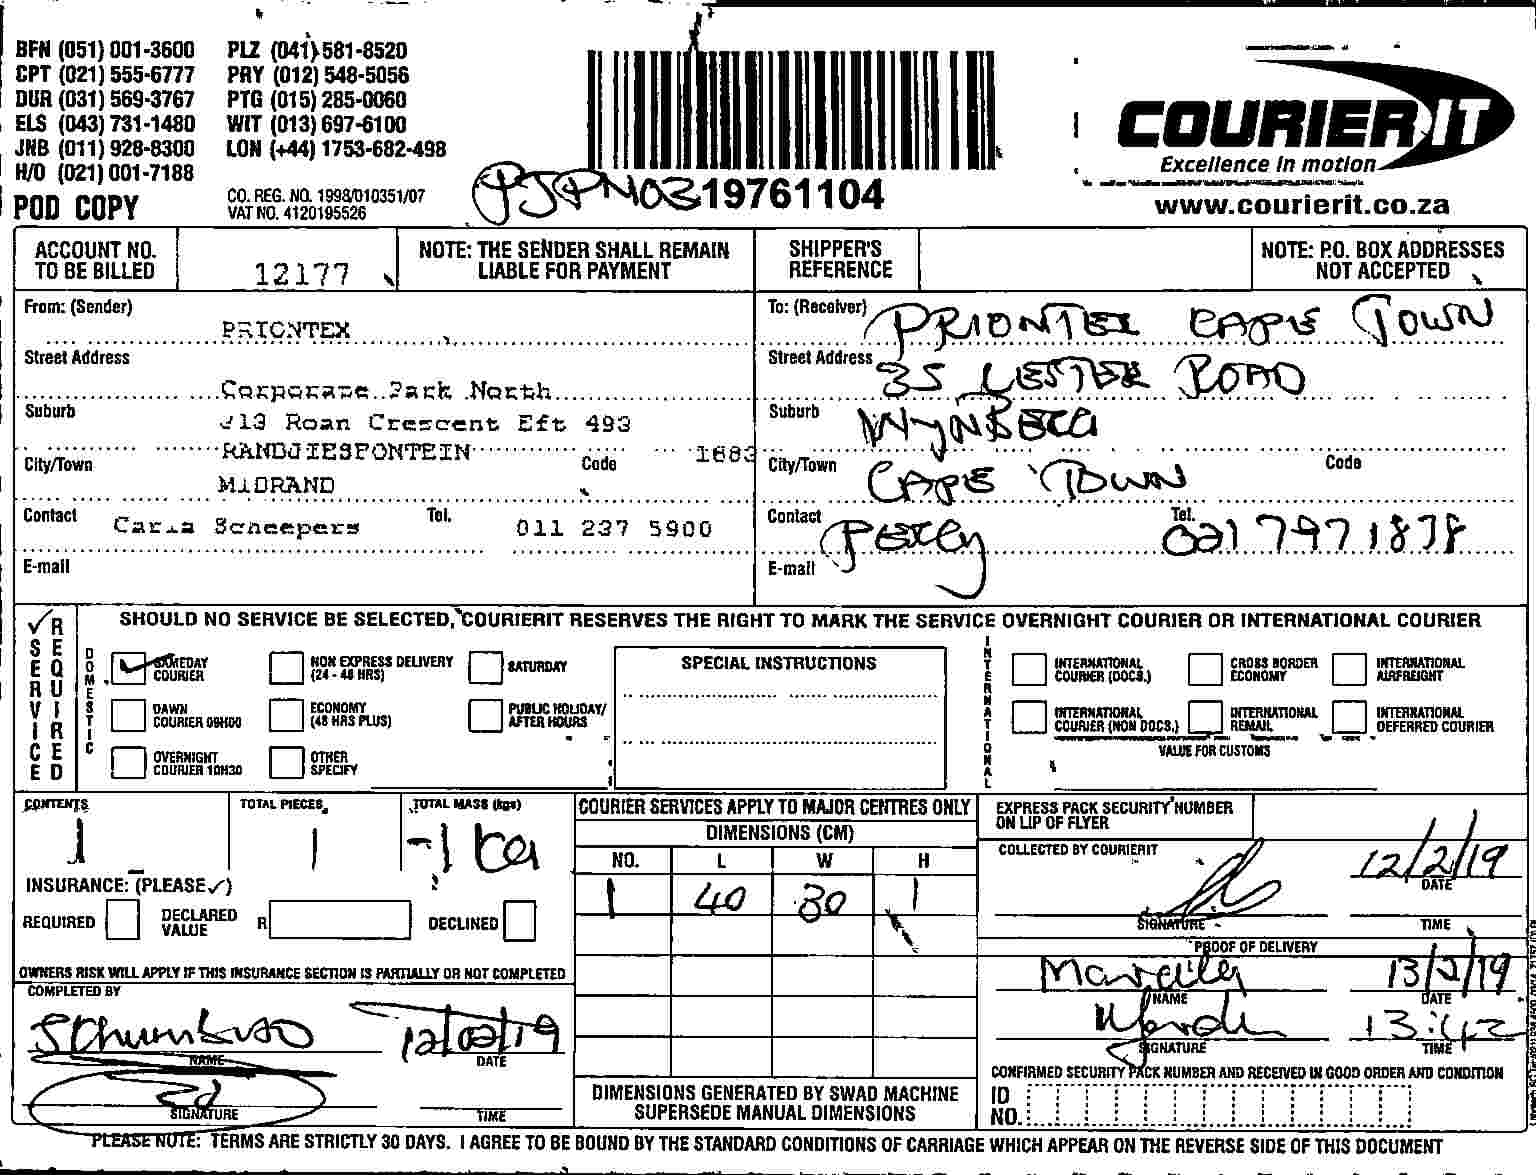 BFN (051) 001-3600 PLZ (041) 581-8520
CPT (021) 555-6777 PRY (012) 548-5056
DUR (031) 569-3767 PTG (015) 285-0060
ELS (043) 731-1480 WIT (013) 697-6100
JNB (011) 928-8300 LON (+44) 1753-682-498
H/O (021) 001-7188
POD COPY
CO. REG. NO. 1998/010351/07
VAT NO. 4120195526
PJPN0319761104
COURIER IT
Excellence in motion
www.courierit.co.za
ACCOUNT NO. TO BE BILLED 12177
NOTE: THE SENDER SHALL REMAIN LIABLE FOR PAYMENT
SHIPPER'S REFERENCE
NOTE: P.O. BOX ADDRESSES NOT ACCEPTED
From: (Sender) PRIONTEX
Street Address Corporate Park North
Suburb 713 Roan Crescent Eft 493
RANDJIESFONTEIN
City/Town MIDRAND Code 1683
Contact Carla Scheepers Tel. 011 237 5900
E-mail
To: (Receiver) PRIONTEX CAPE TOWN
Street Address 35 LESTER ROAD
Suburb WYNBERG
City/Town CAPE TOWN Code
Contact Percy Tel. 021 797 1878
E-mail
SERVICE REQUIRED
SHOULD NO SERVICE BE SELECTED, COURIERIT RESERVES THE RIGHT TO MARK THE SERVICE OVERNIGHT COURIER OR INTERNATIONAL COURIER
DOMESTIC
SAMEDAY COURIER
NON EXPRESS DELIVERY (24 - 48 HRS)
SATURDAY
DAWN COURIER 09H00
ECONOMY (48 HRS PLUS)
PUBLIC HOLIDAY/ AFTER HOURS
OVERNIGHT COURIER 10H30
OTHER SPECIFY
SPECIAL INSTRUCTIONS
INTERNATIONAL
INTERNATIONAL COURIER (DOCS.)
CROSS BORDER ECONOMY
INTERNATIONAL AIRFREIGHT
INTERNATIONAL COURIER (NON DOCS.)
INTERNATIONAL REMAIL
INTERNATIONAL DEFERRED COURIER
VALUE FOR CUSTOMS
CONTENTS 1
TOTAL PIECES 1
TOTAL MASS (kgs) 1 kg
INSURANCE: (PLEASE ✓)
REQUIRED
DECLARED VALUE R
DECLINED
OWNERS RISK WILL APPLY IF THIS INSURANCE SECTION IS PARTIALLY OR NOT COMPLETED
COMPLETED BY
NAME
12/02/19
DATE
SIGNATURE
TIME
COURIER SERVICES APPLY TO MAJOR CENTRES ONLY
DIMENSIONS (CM)
NO. L W H
1 40 30 1
DIMENSIONS GENERATED BY SWAD MACHINE SUPERSEDE MANUAL DIMENSIONS
EXPRESS PACK SECURITY NUMBER ON LIP OF FLYER
COLLECTED BY COURIERIT
12/2/19
DATE
SIGNATURE
TIME
PROOF OF DELIVERY
13/2/19
NAME
DATE
13:42
SIGNATURE
TIME
CONFIRMED SECURITY PACK NUMBER AND RECEIVED IN GOOD ORDER AND CONDITION
ID NO.
PLEASE NOTE: TERMS ARE STRICTLY 30 DAYS. I AGREE TO BE BOUND BY THE STANDARD CONDITIONS OF CARRIAGE WHICH APPEAR ON THE REVERSE SIDE OF THIS DOCUMENT